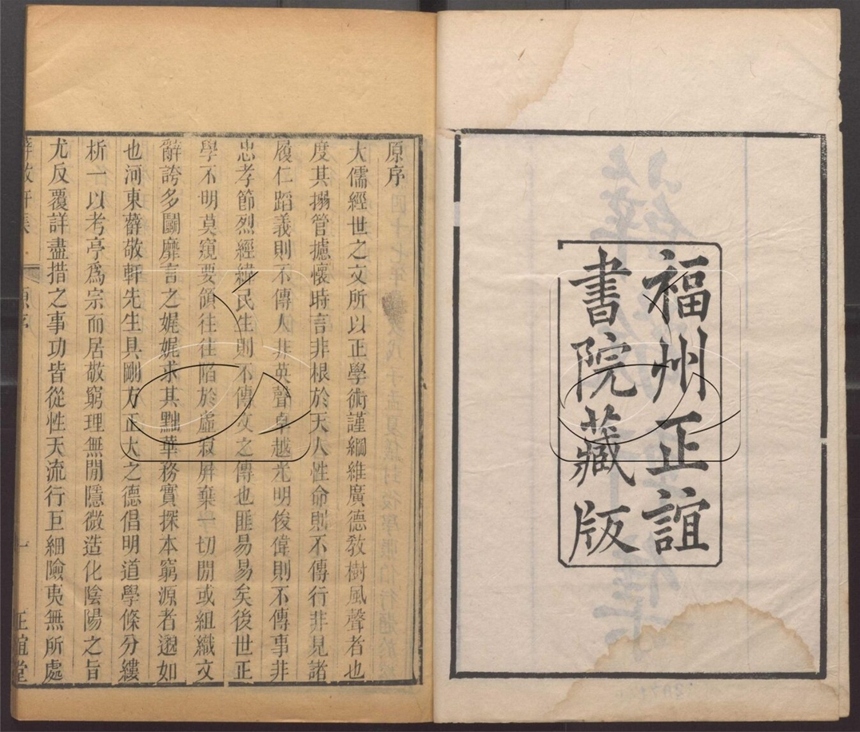 福州正誼
書院藏版
原序
大儒經世之文所以正學術謹綱維廣德敎樹風聲者也
度其搦管攄懷時言非根於天人性命則不傳行非見諸
履仁蹈義則不傳人非英聲卓越光明俊偉則不傳事非
忠孝節烈經緯民生則不傳文之傳也匪易易矣後世正
學不明莫窺要領往往陷於虛寂屛棄一切閒或組織文
辭誇多鬭靡言之娓娓求其黜華務實探本窮源者邈如
也河東薛敬軒先生具剛方正大之德倡明道學條分縷
析一以考亭爲宗而居敬窮理無閒隱微造化陰陽之旨
尤反覆詳盡措之事功皆從性天流行巨細險夷無所處
薛敬軒集 原序 一 正誼堂